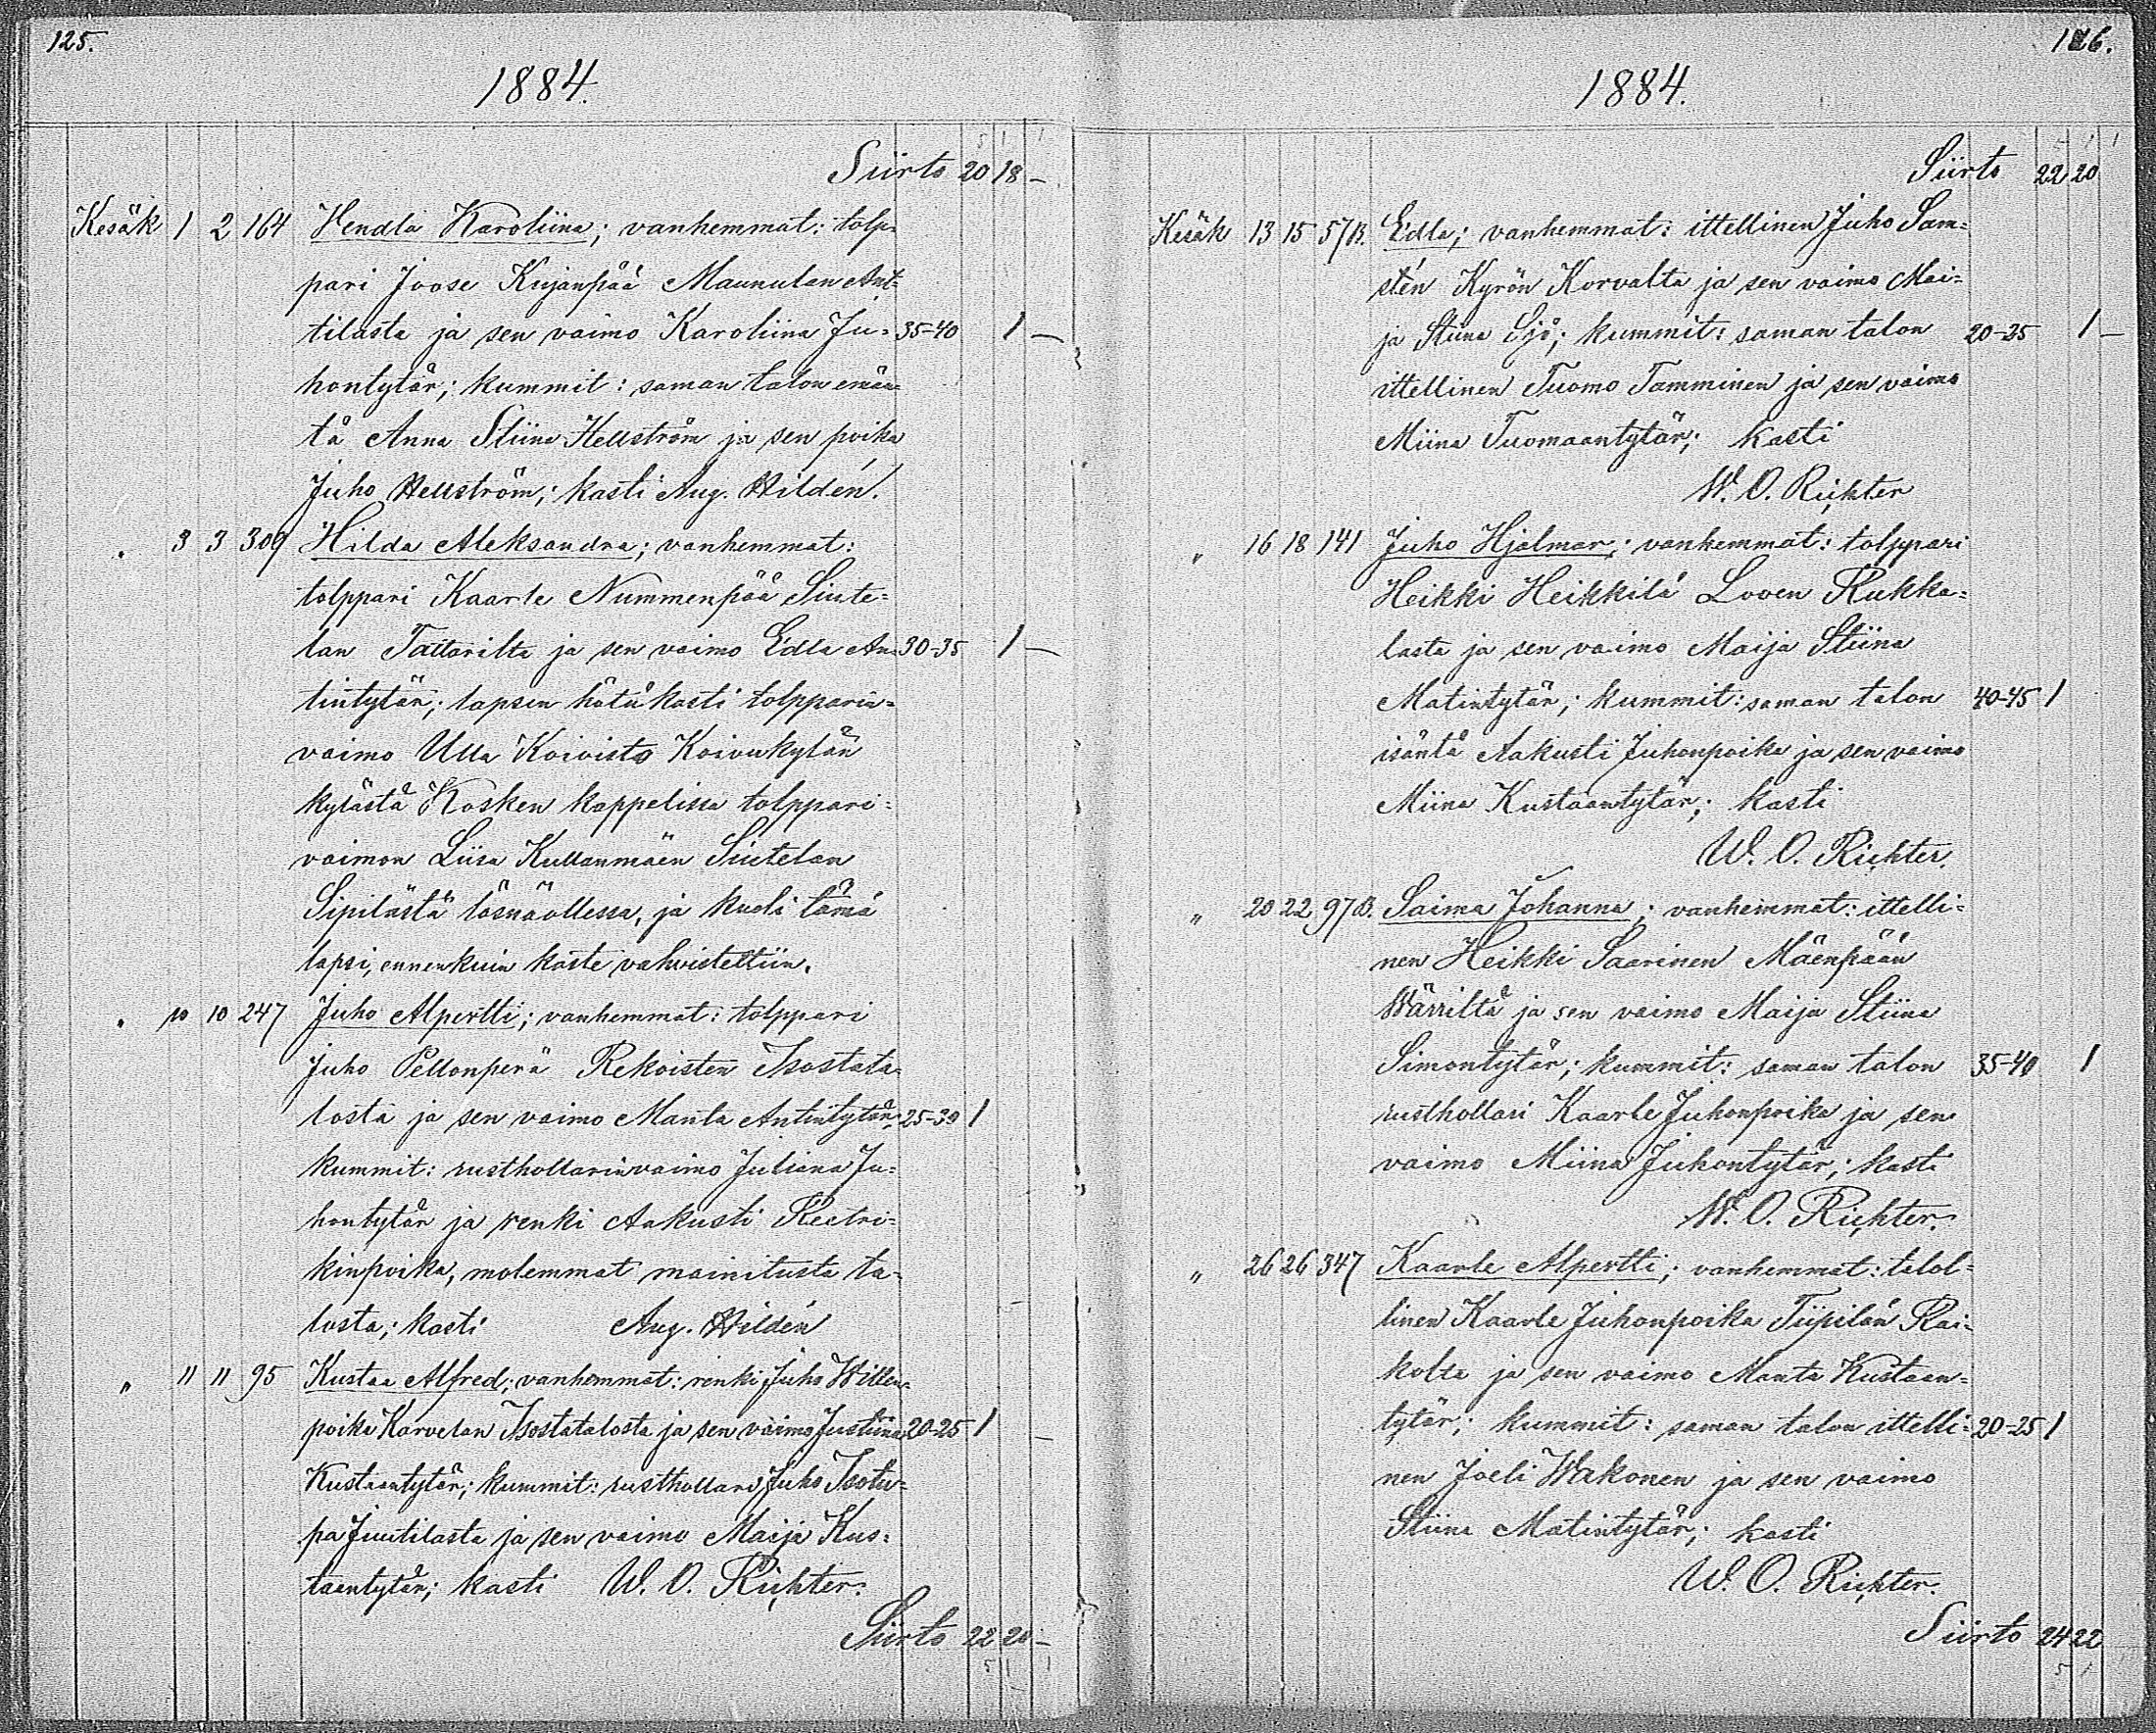 125.
1884.
Siirto 20 18 —
Kesäk 1 2 164 Hendla Karoliina; vanhemmat: tolp-
pari Joose Kujanpää Maunulan Ant-
tilasta ja sen vaimo Karoliina Ju- 35-40 1 —
hontytär; kummit: saman talon emän-
tä Anna Stiina Hellström ja sen poika
Juho Hellström; kasti Aug. Hildén.
" 3 3 309 Hilda Aleksandra; vanhemmat:
tolppari Kaarle Nummenpää Siute-
lan Tattarilta ja sen vaimo Edla An- 30-35 1 —
tintytär; lapsen hätäkasti tolpparin-
vaimo Ulla Koivisto Koivukylän
kylästä Kosken kappelissa tolppari-
vaimon Liisa Kullanmäen Siutelan
Sipilästä läsnäollessa, ja kuoli tämä
lapsi, ennenkuin kaste vahvistettiin.
" 10 10 247 Juho Alpertti; vanhemmat: tolppari
Juho Pellonperä Rekoisten Isostata-
losta ja sen vaimo Manta Antintytär; 25-30 1
kummit: rusthollarinvaimo Juliana Ju-
hontytär ja renki Aakusti Reetri-
kinpoika, molemmat mainitusta ta-
losta; kasti Aug. Hildén
" 11 11 95 Kustaa Alfred; vanhemmat: renki Juho Willen-
poika Karvelan Isostatalosta ja sen vaimo Justiina 20-25 1 —
Kustaantytär; kummit: rusthollari Juho Isotu-
pa Juutilasta ja sen vaimo Maija Kus-
taantytär; kasti W. O. Richter.
Siirto 22 20 —
126.
1884.
Siirto 22 20
Kesäk 13 15 57B. Edla; vanhemmat: ittellinen Juho Sam-
stén Kyrön Korvalta ja sen vaimo Mai-
ja Stiina Sjö; kummit: saman talon 20-25 1 —
ittellinen Tuomo Tamminen ja sen vaimo
Miina Tuomaantytär; kasti
W. O. Richter
" 16 18 141 Juho Hjalmar; vanhemmat: tolppari
Heikki Heikkilä Looen Kukka-
lasta ja sen vaimo Maija Stiina
Matintytär; kummit: saman talon 40-45 1
isäntä Aakusti Juhonpoika ja sen vaimo
Miina Kustaantytär; kasti
W. O. Richter.
" 20 22 97B. Saima Johanna; vanhemmat: ittelli-
nen Heikki Saarinen Mäenpään
Wärriltä ja sen vaimo Maija Stiina
Simontytär; kummit: saman talon 35-40 1
rusthollari Kaarle Juhonpoika ja sen
vaimo Miina Juhontytär; kasti
W. O. Richter.
" 26 26 347 Kaarle Alpertti; vanhemmat: talol-
linen Kaarle Juhonpoika Tiipilän Rai-
kolta ja sen vaimo Manta Kustaan-
tytär; kummit: saman talon ittelli- 20-25 1
nen Joeli Wakonen ja sen vaimo
Stiina Matintytär; kasti
W. O. Richter.
Siirto 24 22